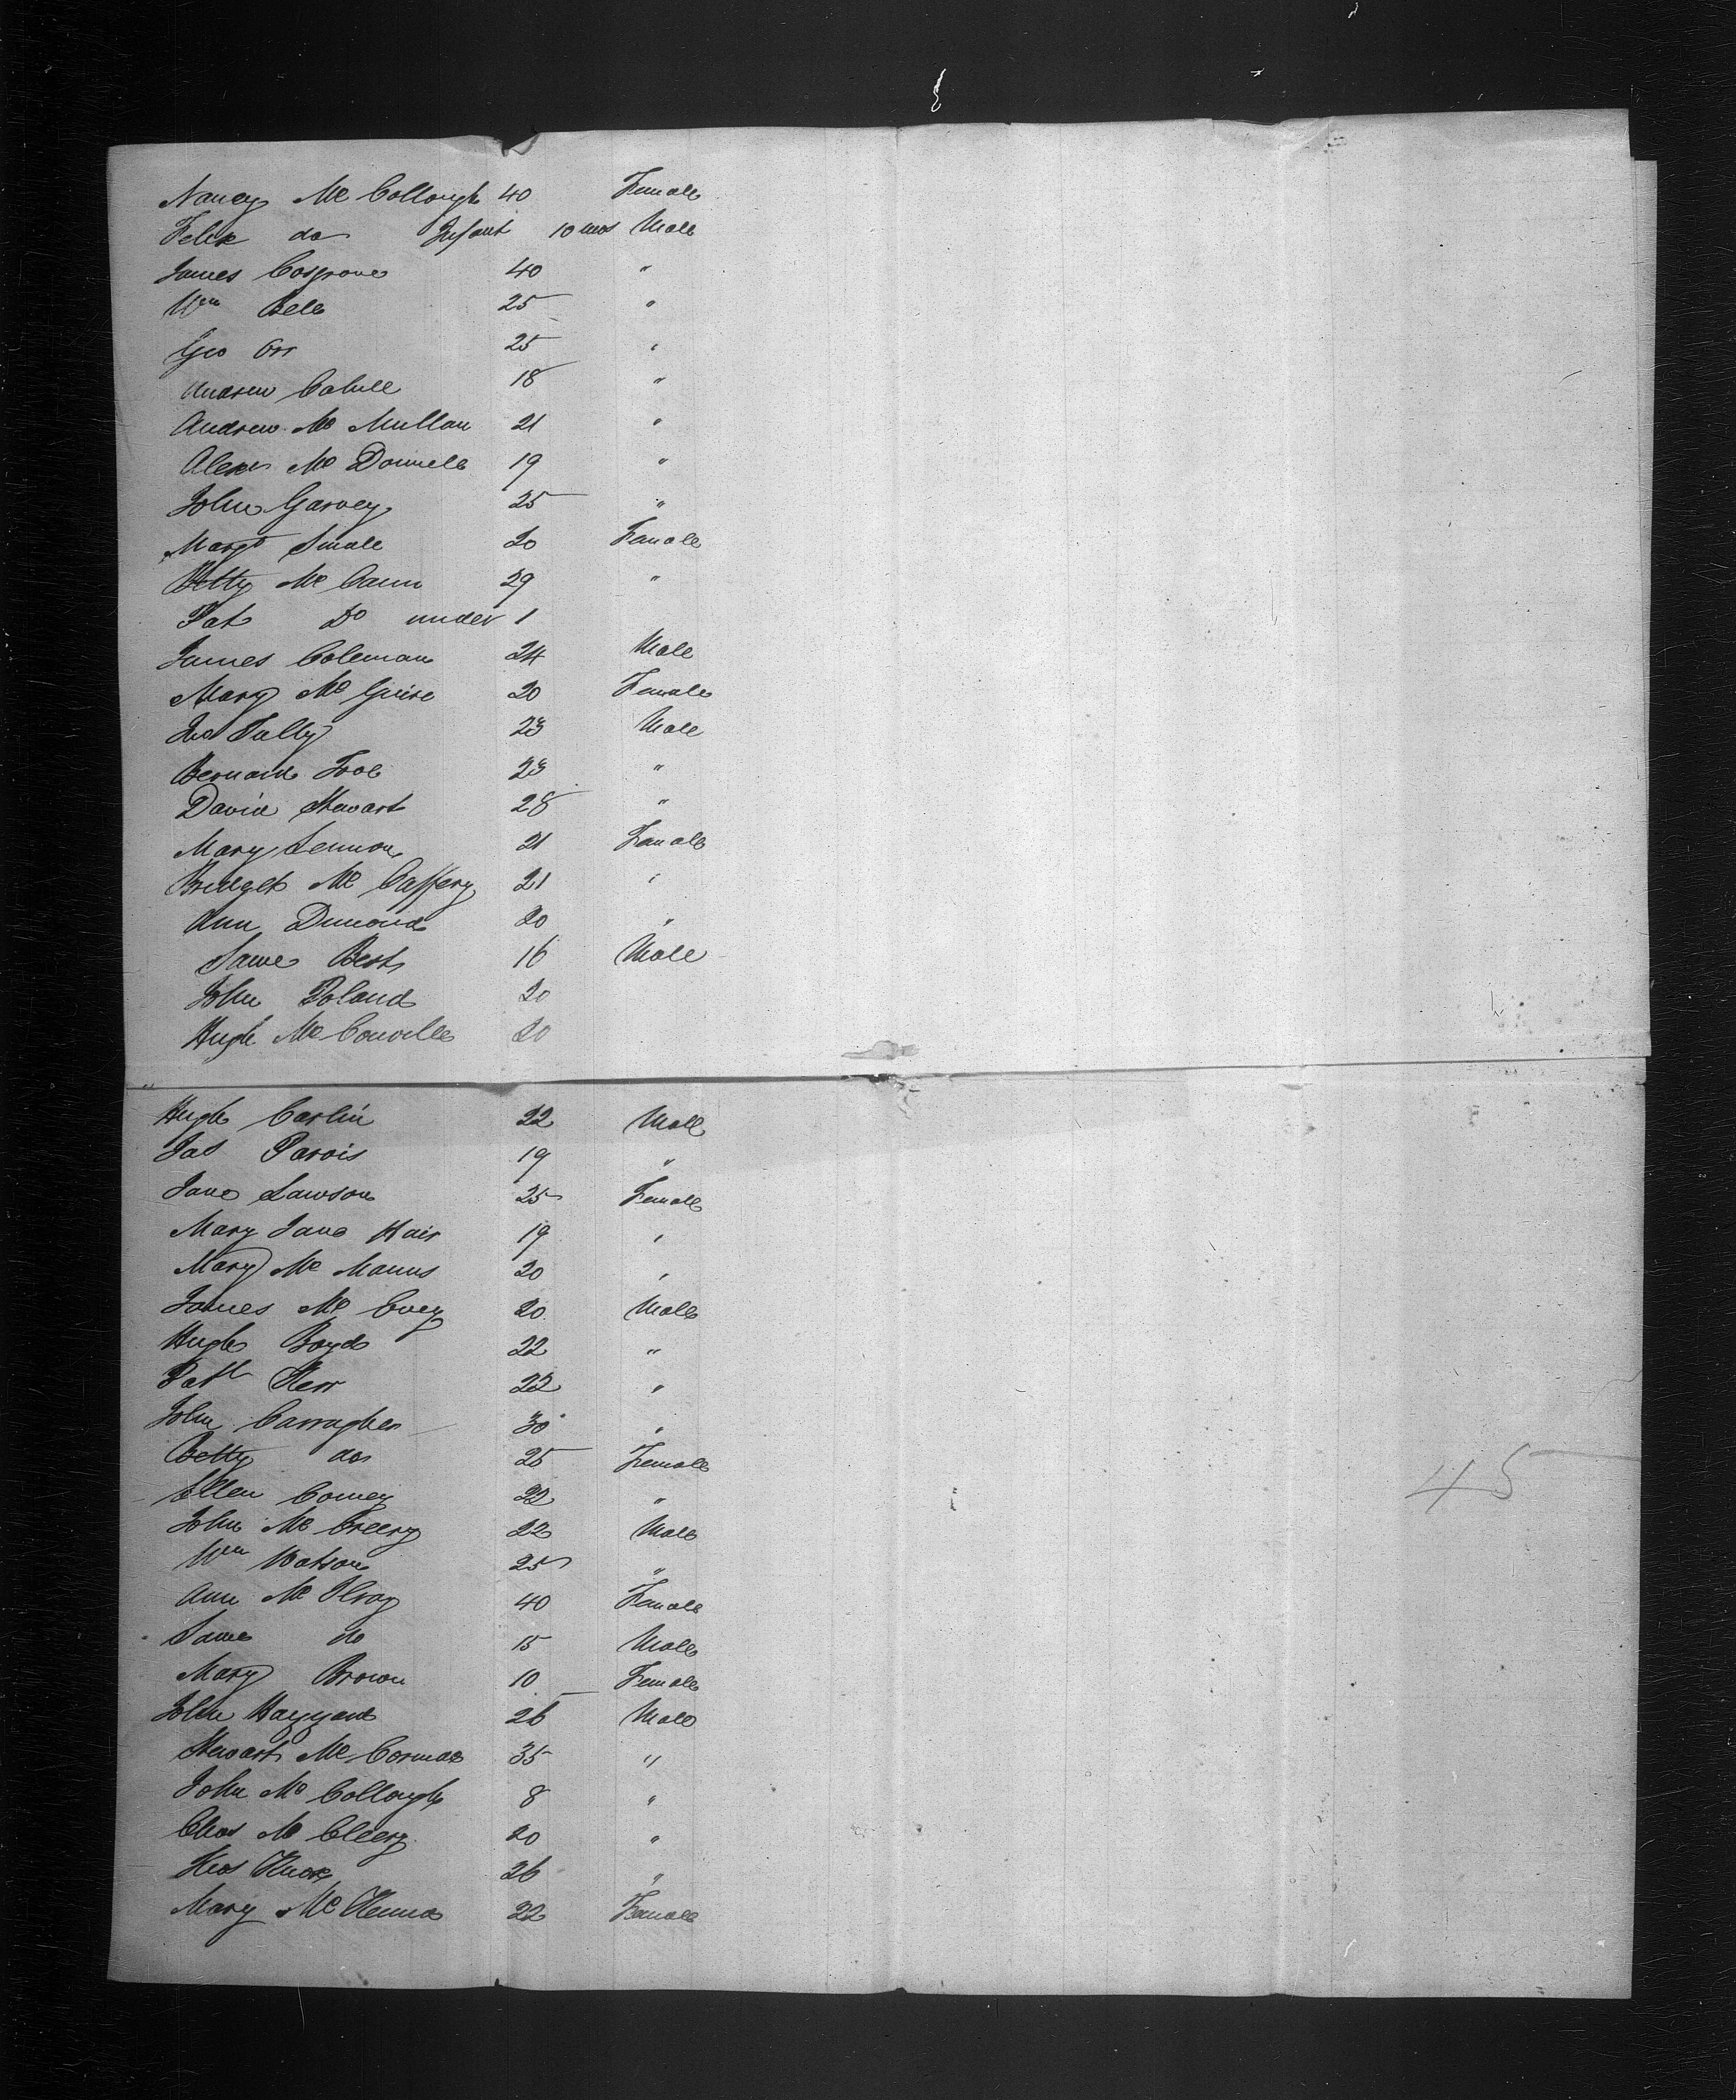 Nancy Mc Collough 40 Female
Felix do Infant 10 mos Male
James Cosgrove 40 "
Wm Bell 25 "
Geo Orr 25 "
Andrew Cahill 18 "
Andrew Mc Mullan 21 "
Alexr Mc Donnell 19 "
John Garvey 25 "
Margt Small 20 Female
Betty Mc Cann 29 "
Pat Do under 1
James Coleman 24 Male
Mary Mc Guire 20 Female
Jno Tully 23 Male
Bernard 23 "
David Stewart 28 "
Mary Lennon 21 Female
Bridget Mc Caffery 21 "
Ann Dimond 20 "
Saml Best 16 Male
John Boland 20
Hugh Mc Conville 20
Hugh Carlin 22 Male
Jas 19 "
Jane Lawson 25 Female
Mary Jane Hair 19 "
Mary Mc Manus 20 "
James Mc Evoy 20 Male
Hugh Boyd 22 "
Patk Kerr 22 "
John Carragher 30 "
Betty do 25 Female
Ellen Comey 22 "
John Mc Creery 22 Male
Wm Watson 25 "
Ann Mc Ilroy 40 Female
Saml do 15 Male
Mary Brown 10 Female
John 26 Male
Stewart Mc Cormac 35 "
John Mc Collough 8 "
Chas Mc Cleery 20 "
Thos Knox 26 "
Mary Mc Kenna 22 Female
45